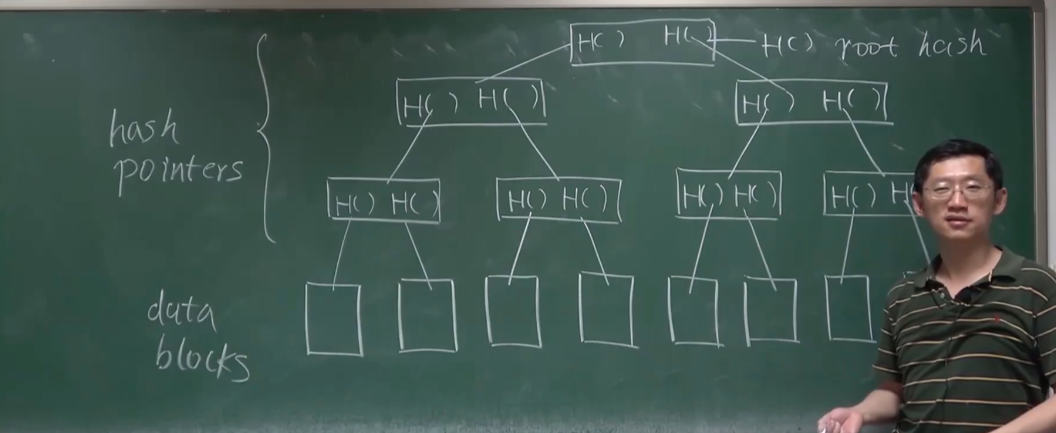 H( ) H( ) H( ) root hash
H( ) H( ) H( ) H( )
hash
pointers
H( ) H( ) H( ) H( ) H( ) H( ) H( )
data
blocks